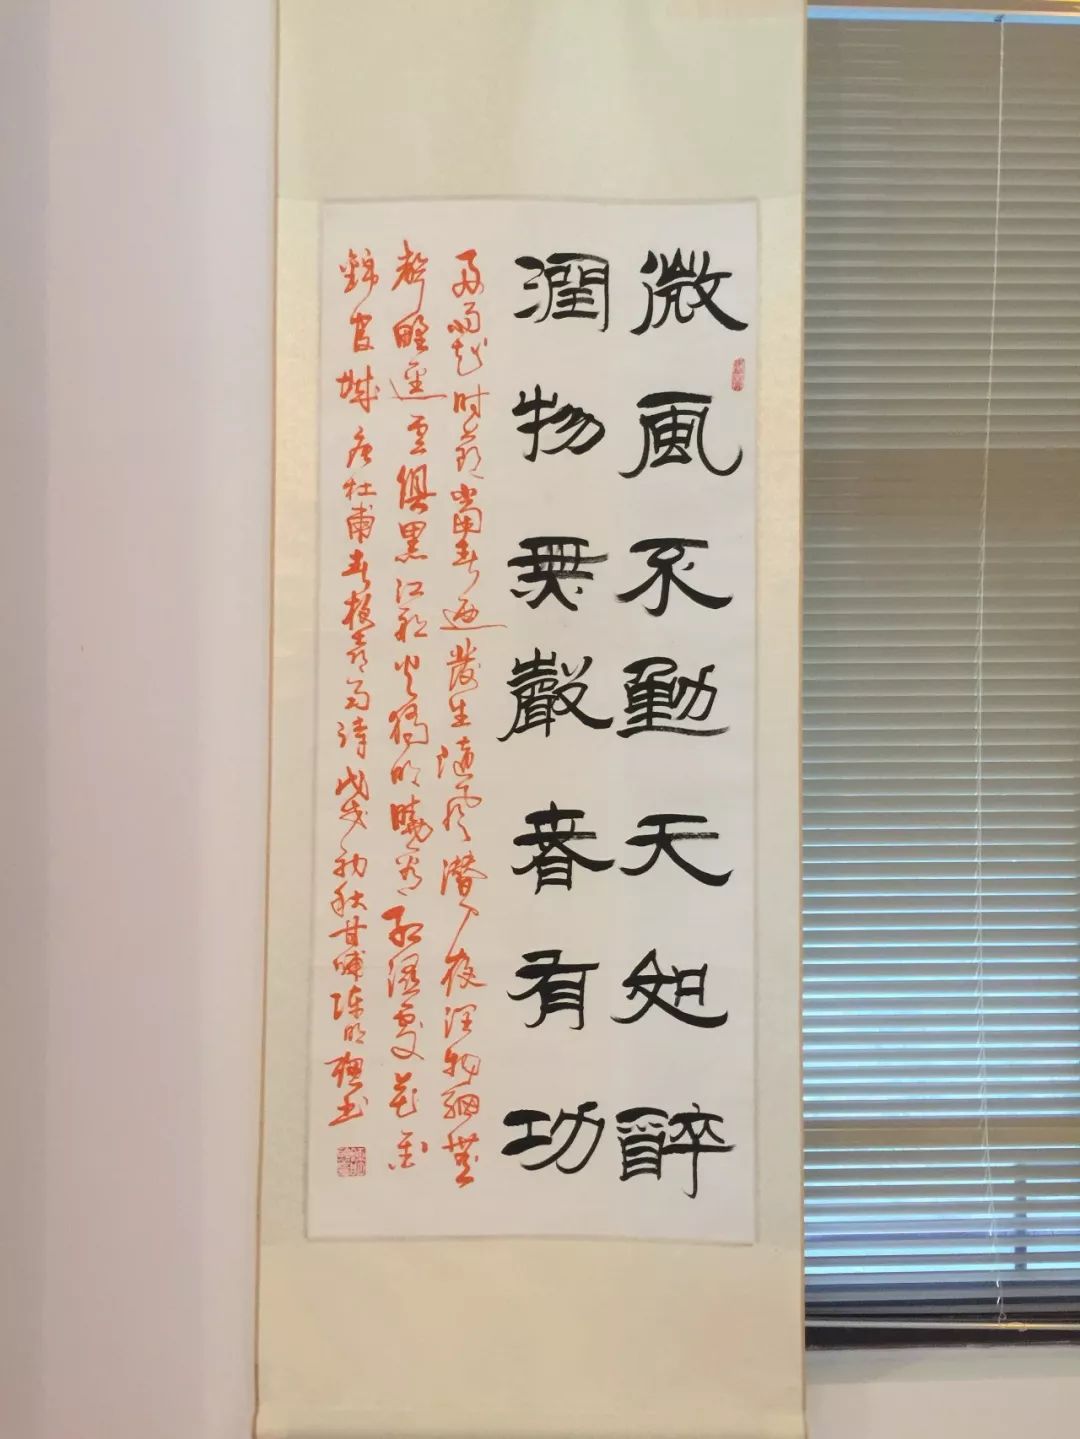 微風不動天如醉
潤物無聲春有功
好雨知時節當春迺發生隨風潛入夜潤物細無
聲野逕雲俱黑江船火獨明曉看紅溼處花重
錦官城唐杜甫春夜喜雨詩戊戌初秋甘陳明書